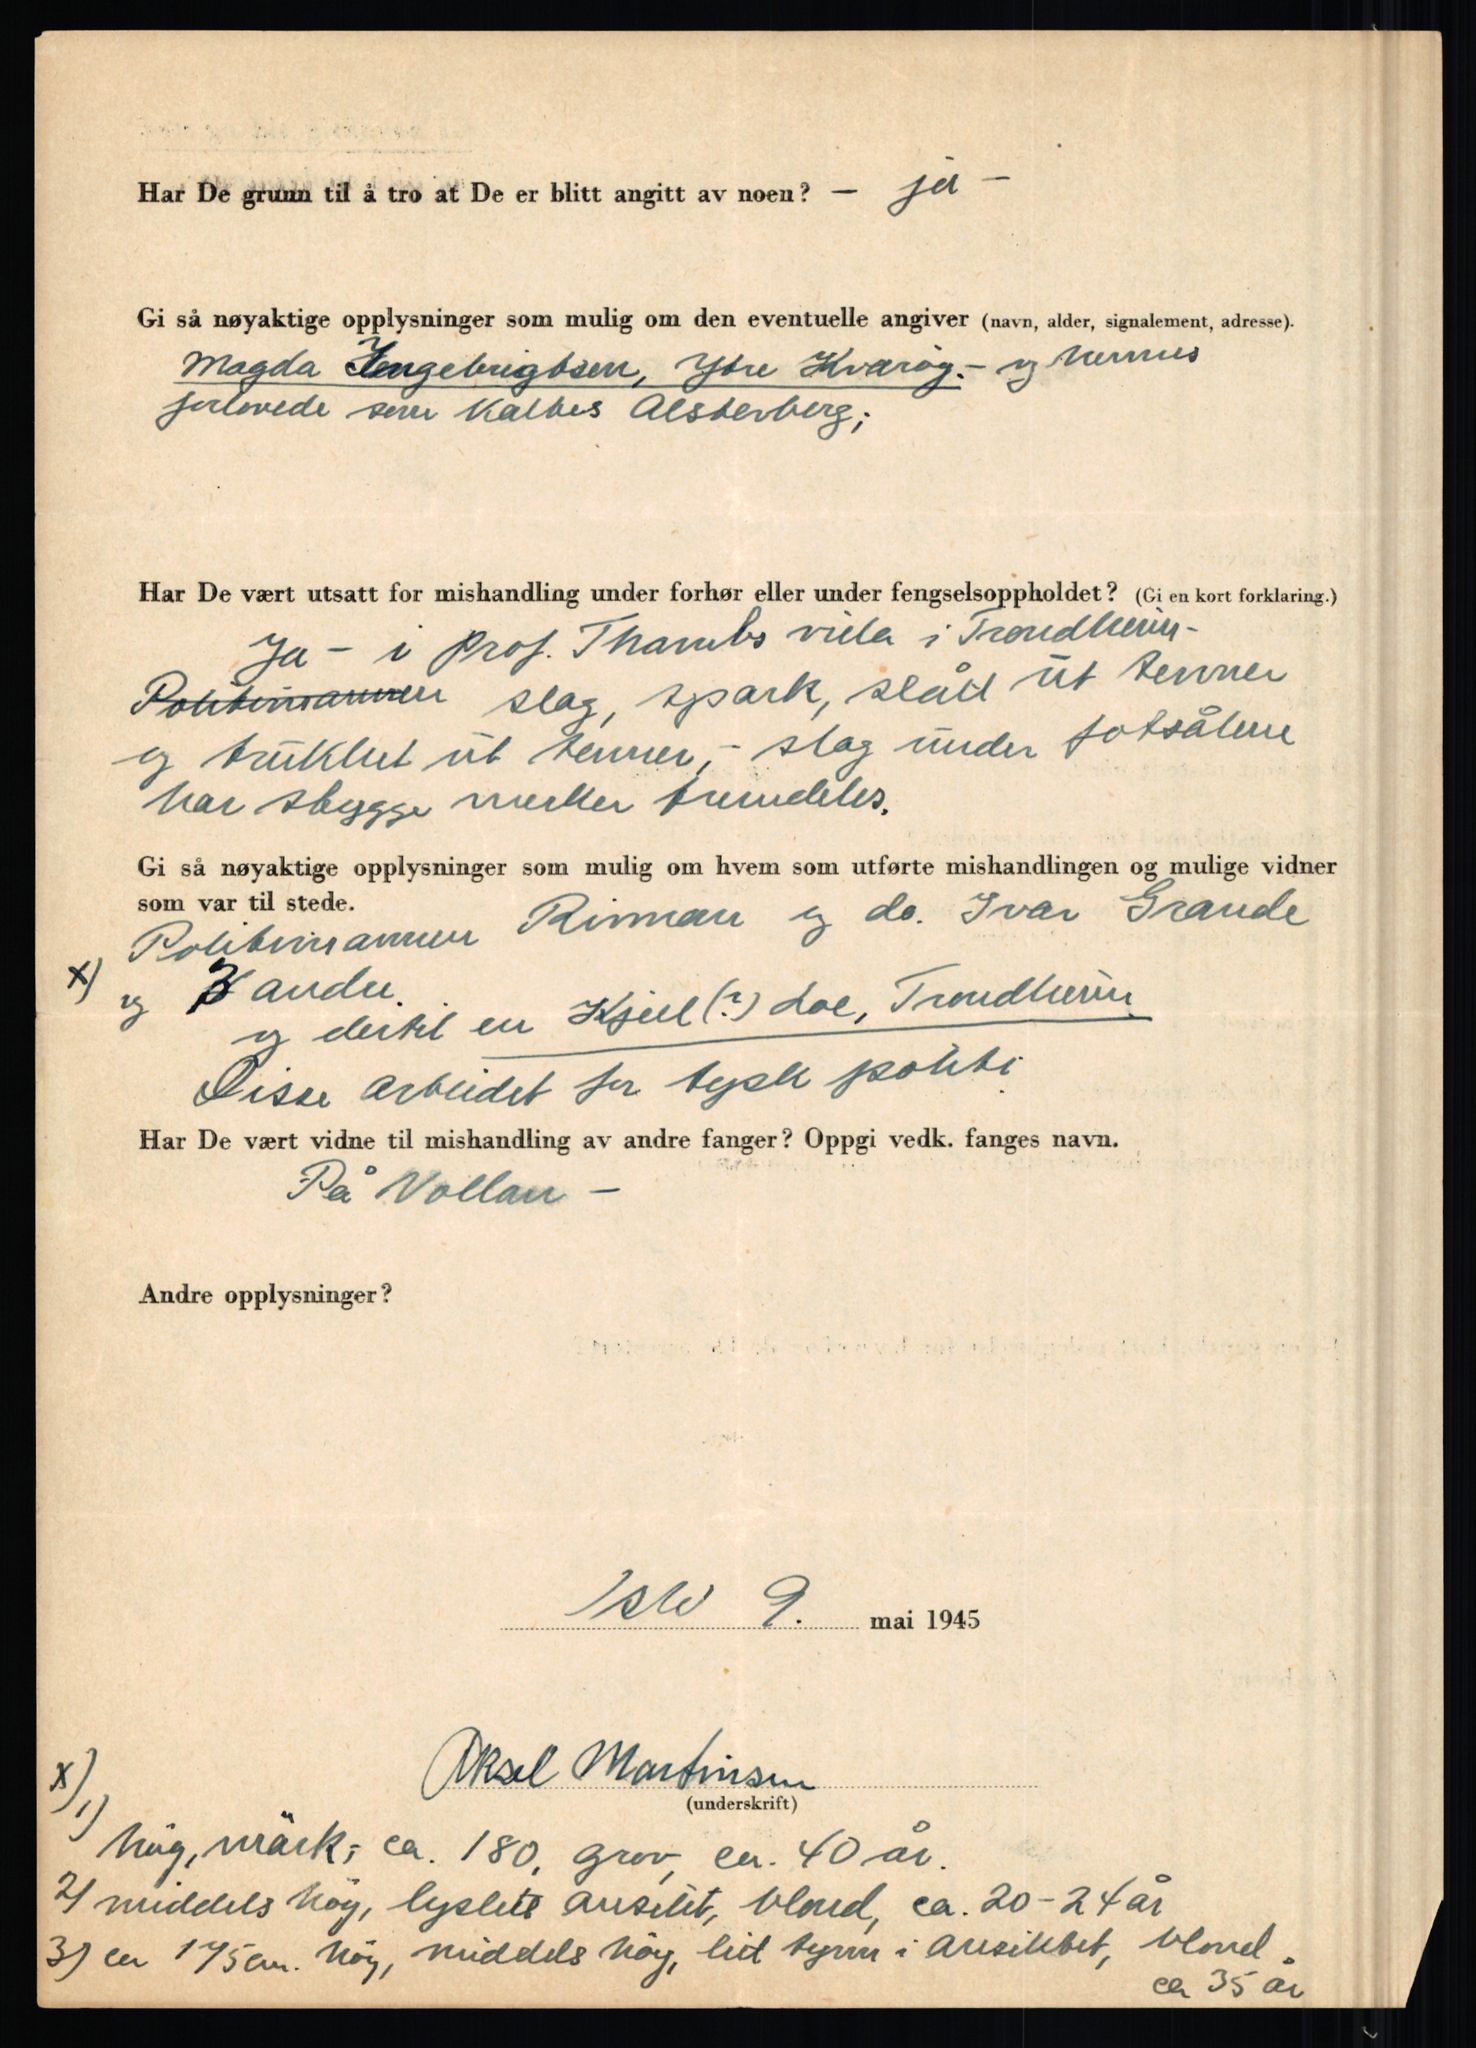 Har De grunn til å tro at De er blitt angitt av noen? — ja —
Gi så nøyaktige opplysninger som mulig om den eventuelle angiver (navn, alder, signalement, adresse).
Magda Ingebrigtsen, Ytre Kvarøy. - og hennes
forlovede som kaltes Alsterberg;
Har De vært utsatt for mishandling under forhør eller under fengselsoppholdet? (Gi en kort forklaring.)
Ja - i prof. Thambs villa i Trondheim -
Politimannen slag, spark, slåd ut tenner
og trukket ut tenner, - slag under fotsålene
har stygge merker fremdeles.
Gi så nøyaktige opplysninger som mulig om hvem som utførte mishandlingen og mulige vidner
som var til stede.
Politimannen Rinnan og do. Ivar Grande
x) og Zander.
og dertil en Kjell (?) Loe, Trondheim
Disse arbeidet for tysk politi
Har De vært vidne til mishandling av andre fanger? Oppgi vedk. fanges navn.
På Vollan -
Andre opplysninger?
9. mai 1945
Aksel Martinsen
(underskrift)
x) 1)
høg, mørk, ca. 180, grov, ca. 40 år.
2) middels høg, lyslett ansikt, blond, ca. 20-24 år
3) ca 175 cm. høg, middels høg, litt tynn i ansiktet, blond.
ca 35 år